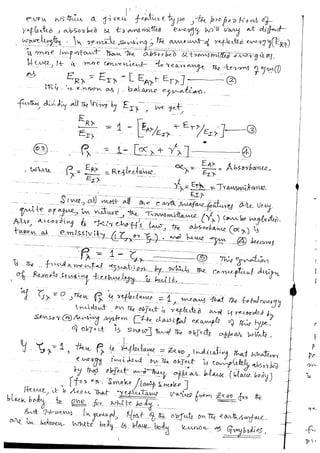 even within a given feature type, the proportions of
reflected, absorbed & transmitted energy will vary at different
wavelengths. In remote sensing, the amount of reflected energy (ERλ)
is more important than the absorbed & transmitted energies.
Hence, It is more convenient to rearrange the terms of eqn ①
as
ERλ = EIλ - [EAλ + ETλ] — ②
This is known as balance equation.
further dividing all the terms by EIλ, we get,
ERλ/EIλ = 1 - [EAλ/EIλ + ETλ/EIλ] — ③
(or) ρλ = 1 - [αλ + γλ] — ④
where ρλ = ERλ/EIλ = Reflectance. αλ = EAλ/EIλ = Absorbance.
γλ = ETλ/EIλ = Transmittance.
Since, all most all the earth surface features are very
quite opaque, in nature, the Transmittance (γλ) can be neglected.
Also, according to Kirchoff's law, the absorbance (αλ) is
taken as emissivity and hence eqn ④ becomes
ρλ = 1 - ζλ — ⑤ This equation
is the fundamental equation by which the conceptual design
of Remote sensing technology is built.
if ζλ = 0, then ρλ ie reflectance = 1, means that the total energy
incident on the object is reflected and is recorded by
sensor (or) sensing system [The classical example of this type
of object is snow] and the objects appear white.
If ζλ = 1, then ρλ ie reflectance = zero, indicating that whatever
energy incident on the object is completely absorbed
by that object and thus appear black. (black body)
[for ex. Smoke / lamp smoke]
Hence, it is seen that reflectance varies from zero for the
black body to one for white body.
In general, Most of the objects on the earth surface
are in between white body & black body known as Greybodies.